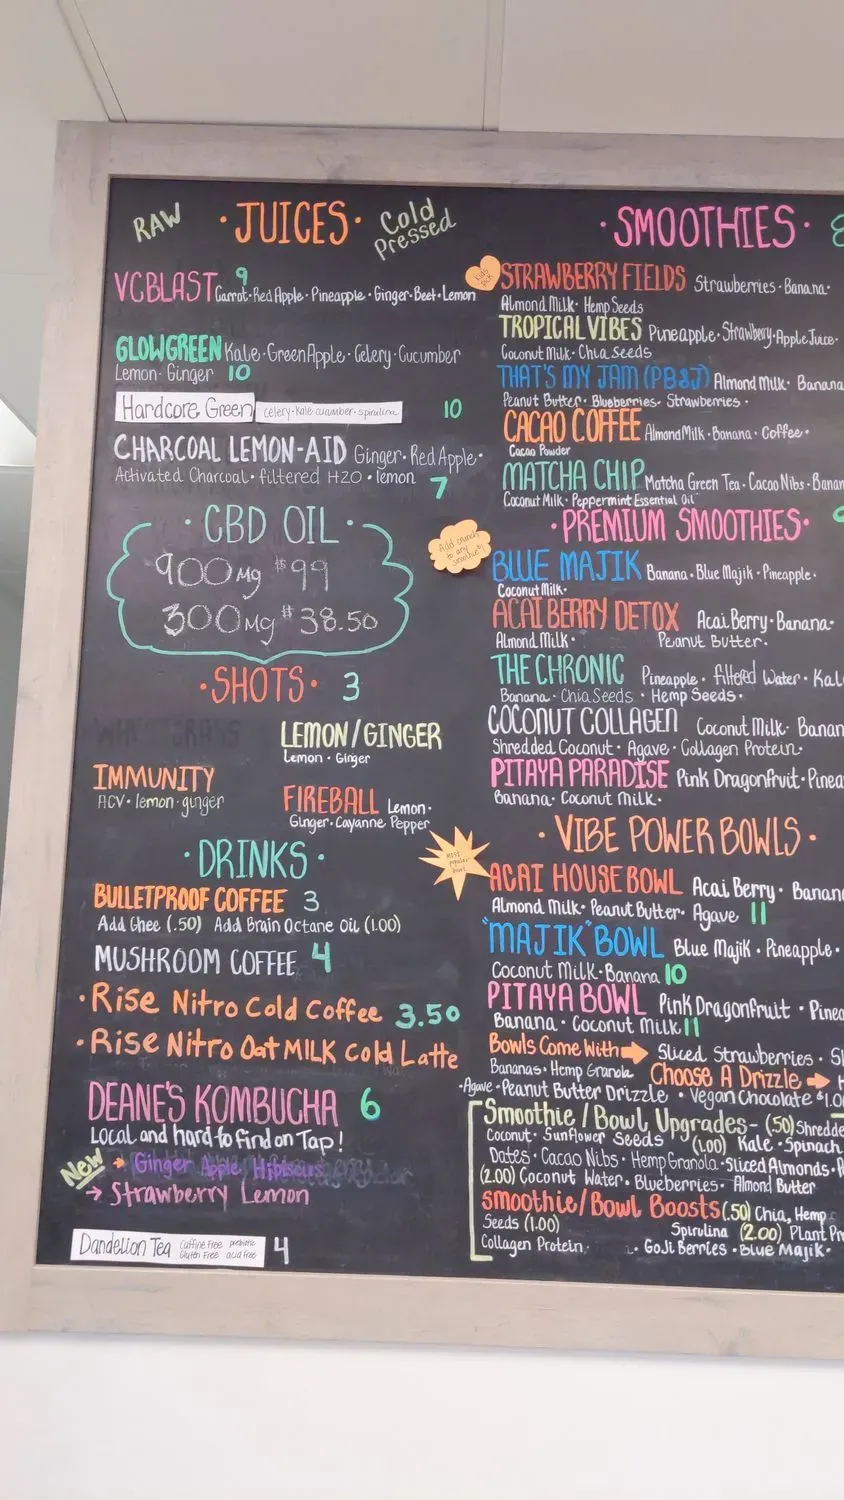 RAW
· JUICES ·
Cold
Pressed
VCBLAST 9
Carrot·Red Apple·Pineapple·Ginger·Beet·Lemon
GLOWGREEN Kale·Green Apple·Celery·Cucumber
Lemon·Ginger 10
Hardcore Green celery·kale·cucumber·spirulina 10
CHARCOAL LEMON-AID Ginger·Red Apple·
Activated Charcoal·filtered H2O·lemon 7
· CBD OIL ·
900mg $99
300mg $38.50
· SHOTS · 3
LEMON/GINGER
Lemon·Ginger
IMMUNITY
ACV·lemon·ginger
FIREBALL Lemon·
Ginger·Cayanne Pepper
· DRINKS ·
BULLETPROOF COFFEE 3
Add Ghee (.50) Add Brain Octane Oil (1.00)
MUSHROOM COFFEE 4
· Rise Nitro Cold Coffee 3.50
· Rise Nitro Oat MILK Cold Latte
DEANE'S KOMBUCHA 6
Local and hard to find on Tap!
New → Ginger Apple Hibiscus
→ Strawberry Lemon
Dandelion Tea caffine Free prebiotic
Gluten Free acid free
4
· SMOOTHIES ·
kids
pick
STRAWBERRY FIELDS Strawberries·Banana·
Almond Milk·Hemp Seeds
TROPICAL VIBES Pineapple·Strawberry·Apple Juice·
Coconut Milk·Chia Seeds
THAT'S MY JAM (PB&J) Almond Milk·Banana
Peanut Butter·Blueberries·Strawberries·
CACAO COFFEE Almond Milk·Banana·Coffee·
Cacao Powder
MATCHA CHIP Matcha Green Tea·Cacao Nibs·Banan
Coconut Milk·Peppermint Essential Oil
· PREMIUM SMOOTHIES ·
Add crunch
to any
smoothie
BLUE MAJIK Banana·Blue Majik·Pineapple·
Coconut Milk·
ACAI BERRY DETOX Acai Berry·Banana·
Almond Milk· Peanut Butter·
THE CHRONIC Pineapple·filtered Water·Kal
Banana·Chia Seeds·Hemp Seeds·
COCONUT COLLAGEN Coconut Milk·Banan
Shredded Coconut·Agave·Collagen Protein·
PITAYA PARADISE Pink Dragonfruit·Pinea
Banana·Coconut Milk·
· VIBE POWER BOWLS ·
Most
popular
bowl
ACAI HOUSE BOWL Acai Berry·Banan
Almond Milk·Peanut Butter·Agave 11
"MAJIK" BOWL Blue Majik·Pineapple·
Coconut Milk·Banana 10
PITAYA BOWL Pink Dragonfruit·Pinea
Banana·Coconut Milk 11
Bowls Come With → Sliced Strawberries·Sl
Bananas·Hemp Granola Choose A Drizzle → H
·Agave·Peanut Butter Drizzle·Vegan Chocolate $1.0
Smoothie/Bowl Upgrades- (.50) Shredde
Coconut·Sunflower Seeds (1.00) Kale·Spinach
Dates·Cacao Nibs·Hemp Granola·Sliced Almonds·P
(2.00) Coconut Water·Blueberries·Almond Butter
Smoothie/Bowl Boosts (.50) Chia, Hemp
Seeds (1.00) Spirulina (2.00) Plant Pr
Collagen Protein·Goji Berries·Blue Majik·